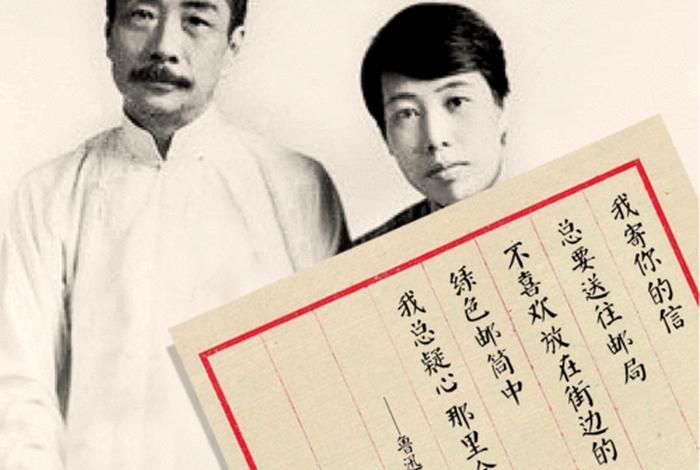 我寄你的信
总要送往邮局
不喜欢放在街边的
绿色邮筒中
我总疑心那里会
——鲁迅